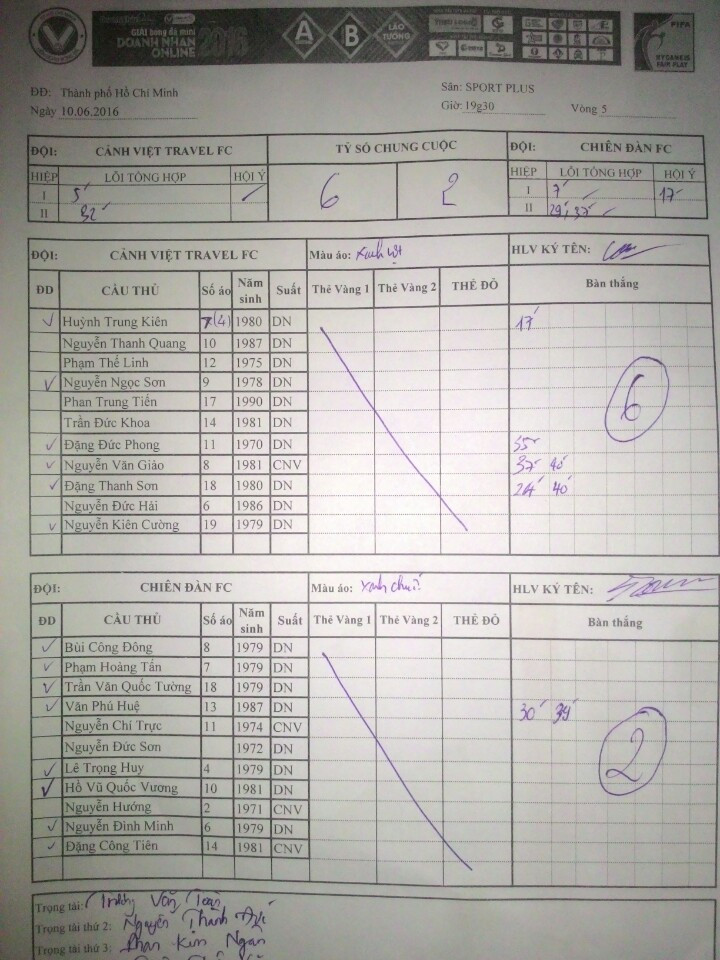 GIẢI bóng đá mini
DOANH NHÂN 2016
ONLINE
A B LÃO TƯỚNG
FIFA
FAIR PLAY
ĐĐ: Thành phố Hồ Chí Minh Sân: SPORT PLUS
Ngày 10.06.2016 Giờ: 19g30 Vòng 5
ĐỘI: CẢNH VIỆT TRAVEL FC TỶ SỐ CHUNG CUỘC ĐỘI: CHIÊN ĐÀN FC
HIỆP LỖI TỔNG HỢP HỘI Ý 6 2 HIỆP LỖI TỔNG HỢP HỘI Ý
I 5' I 7' 17'
II 32' II 29' 37'
ĐỘI: CẢNH VIỆT TRAVEL FC Màu áo: HLV KÝ TÊN:
ĐD CẦU THỦ Số áo Năm sinh Suất Thẻ Vàng 1 Thẻ Vàng 2 THẺ ĐỎ Bàn thắng
Huỳnh Trung Kiên 7 (4) 1980 DN 17'
Nguyễn Thanh Quang 10 1987 DN
Phạm Thế Linh 12 1975 DN
Nguyễn Ngọc Sơn 9 1978 DN
Phan Trung Tiến 17 1990 DN 6
Trần Đức Khoa 14 1981 DN
Đặng Đức Phong 11 1970 DN
Nguyễn Văn Giáo 8 1981 CNV 37' 40'
Đặng Thanh Sơn 18 1980 DN 24' 40'
Nguyễn Đức Hải 6 1986 DN
Nguyễn Kiên Cường 19 1979 DN
ĐỘI: CHIÊN ĐÀN FC Màu áo: xanh chuối HLV KÝ TÊN:
ĐD CẦU THỦ Số áo Năm sinh Suất Thẻ Vàng 1 Thẻ Vàng 2 THẺ ĐỎ Bàn thắng
Bùi Công Đông 8 1979 DN
Phạm Hoàng Tấn 7 1979 DN
Trần Văn Quốc Tường 18 1979 DN
Văn Phú Huệ 13 1987 DN 30' 39'
Nguyễn Chí Trực 11 1974 CNV
Nguyễn Đức Sơn 1972 DN 2
Lê Trọng Huy 4 1979 DN
Hồ Vũ Quốc Vương 10 1981 DN
Nguyễn Hướng 2 1971 CNV
Nguyễn Đình Minh 6 1979 DN
Đặng Công Tiên 14 1981 CNV
Trọng tài: Trương Văn Toàn
Trọng tài thứ 2: Nguyễn Thành
Trọng tài thứ 3: Phan Kim Ngân